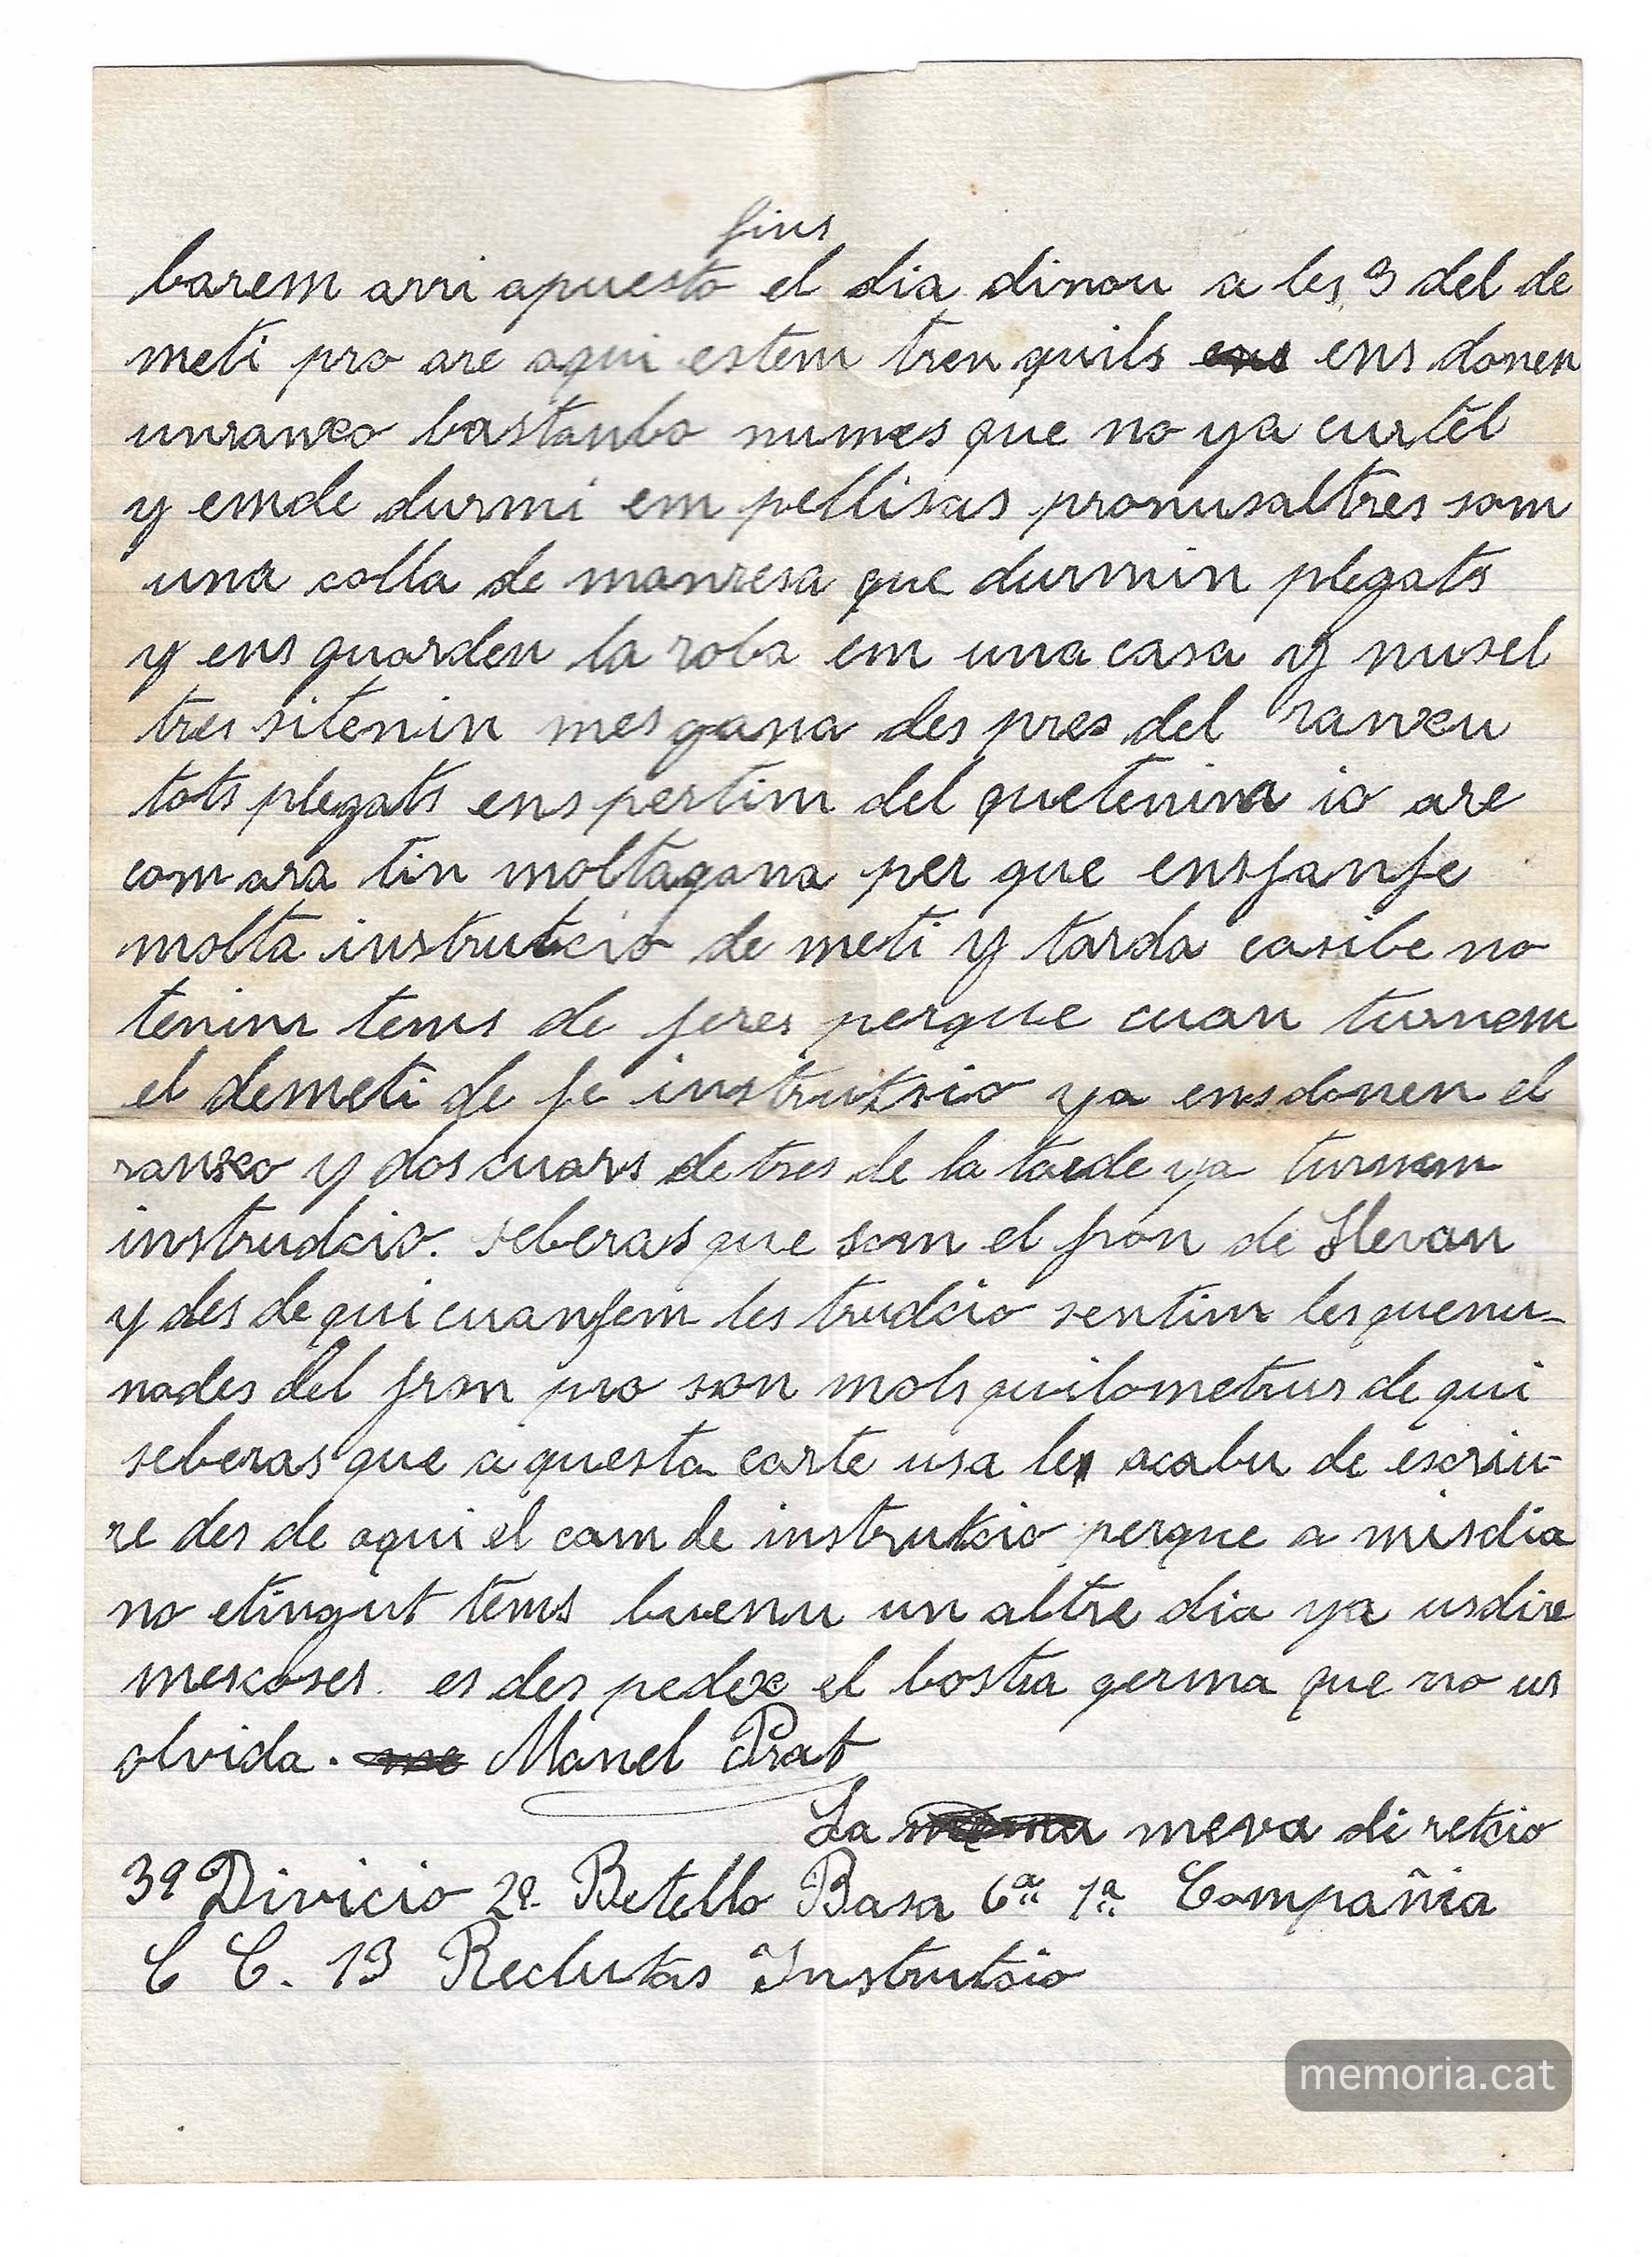 fins
barem arri apuesto el dia dinou a les 3 del de
meti pro are aqui estem tren quils ens ens donen
unranxo bastanbo numes que no ya curtel
y emde durmi em pellisas pronusaltres som
una colla de manresa que durmin plegats
y ens guarden la roba em una casa y nusel
tres sitenin mes gana des pres del ranxeu
tots plegats ens pertim del quetenim io are
com ara tin moltagana per que ensfanfe
molta instrutcio de meti y tarda casibe no
tenim tems de feres perque cuan turnem
el demeti de fe instrutsio ya ens donen el
ranxo y dos cuars de tres de la tarde ya turnem
instrudcio. seberas que som el fron de Llevan
y des de qui cuanfem les trudcio sentim les quenu-
nades del fron pro son mols quilometrus de qui
seberas que a questa carte usa le acabu de escriu-
re des de aqui el cam de instrutcio perque a misdia
no etingut tems buenu un altre dia ya usdire
mescoses. es des pedex el bostra germa que no us
olvida. me Manel Prat
La meva di retcio
3ª Divicio 2ª Betello Basa 6ª 1ª Compañia
C C. 13 Reclutas Instrutsio
memoria.cat